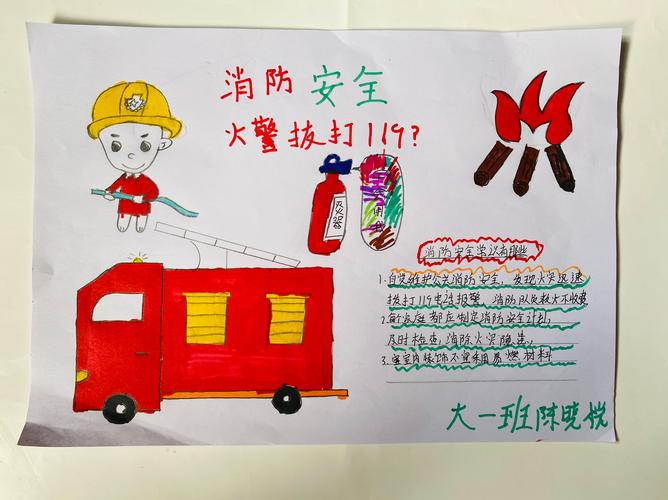 消防安全
火警拨打119?
灭火器
消防安全常识有哪些
1.自觉维护公共消防安全，发现火灾迅速
拨打119电话报警，消防队员救火不收费
2.每家庭都应制定消防安全计划，
及时检查，消除火灾隐患，
3.室内装饰不宜采用易燃材料
大一班陈晓悦